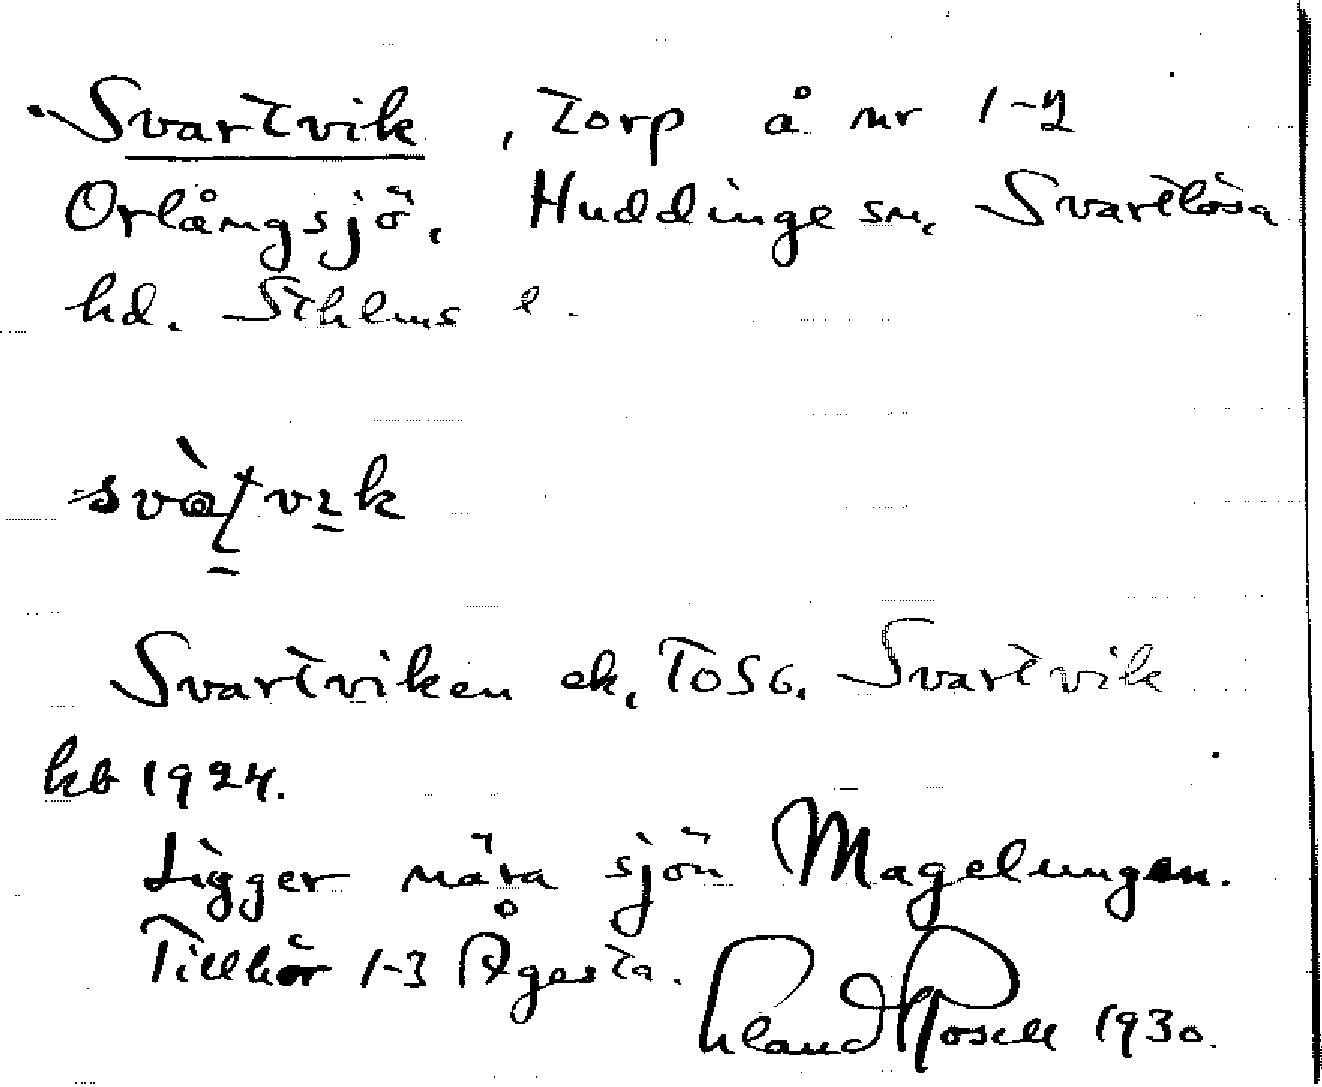 Svartvik, torp å nr 1-2
Orlångsjö, Huddinge sn, Svartlösa
hd. Sthlms l.
Svartviken ek, ToSG. Svartvik
kb 1924.
Ligger nära sjön Magelungen.
Tillhör 1-3 Ågesta.
Erland Rosell 1930.